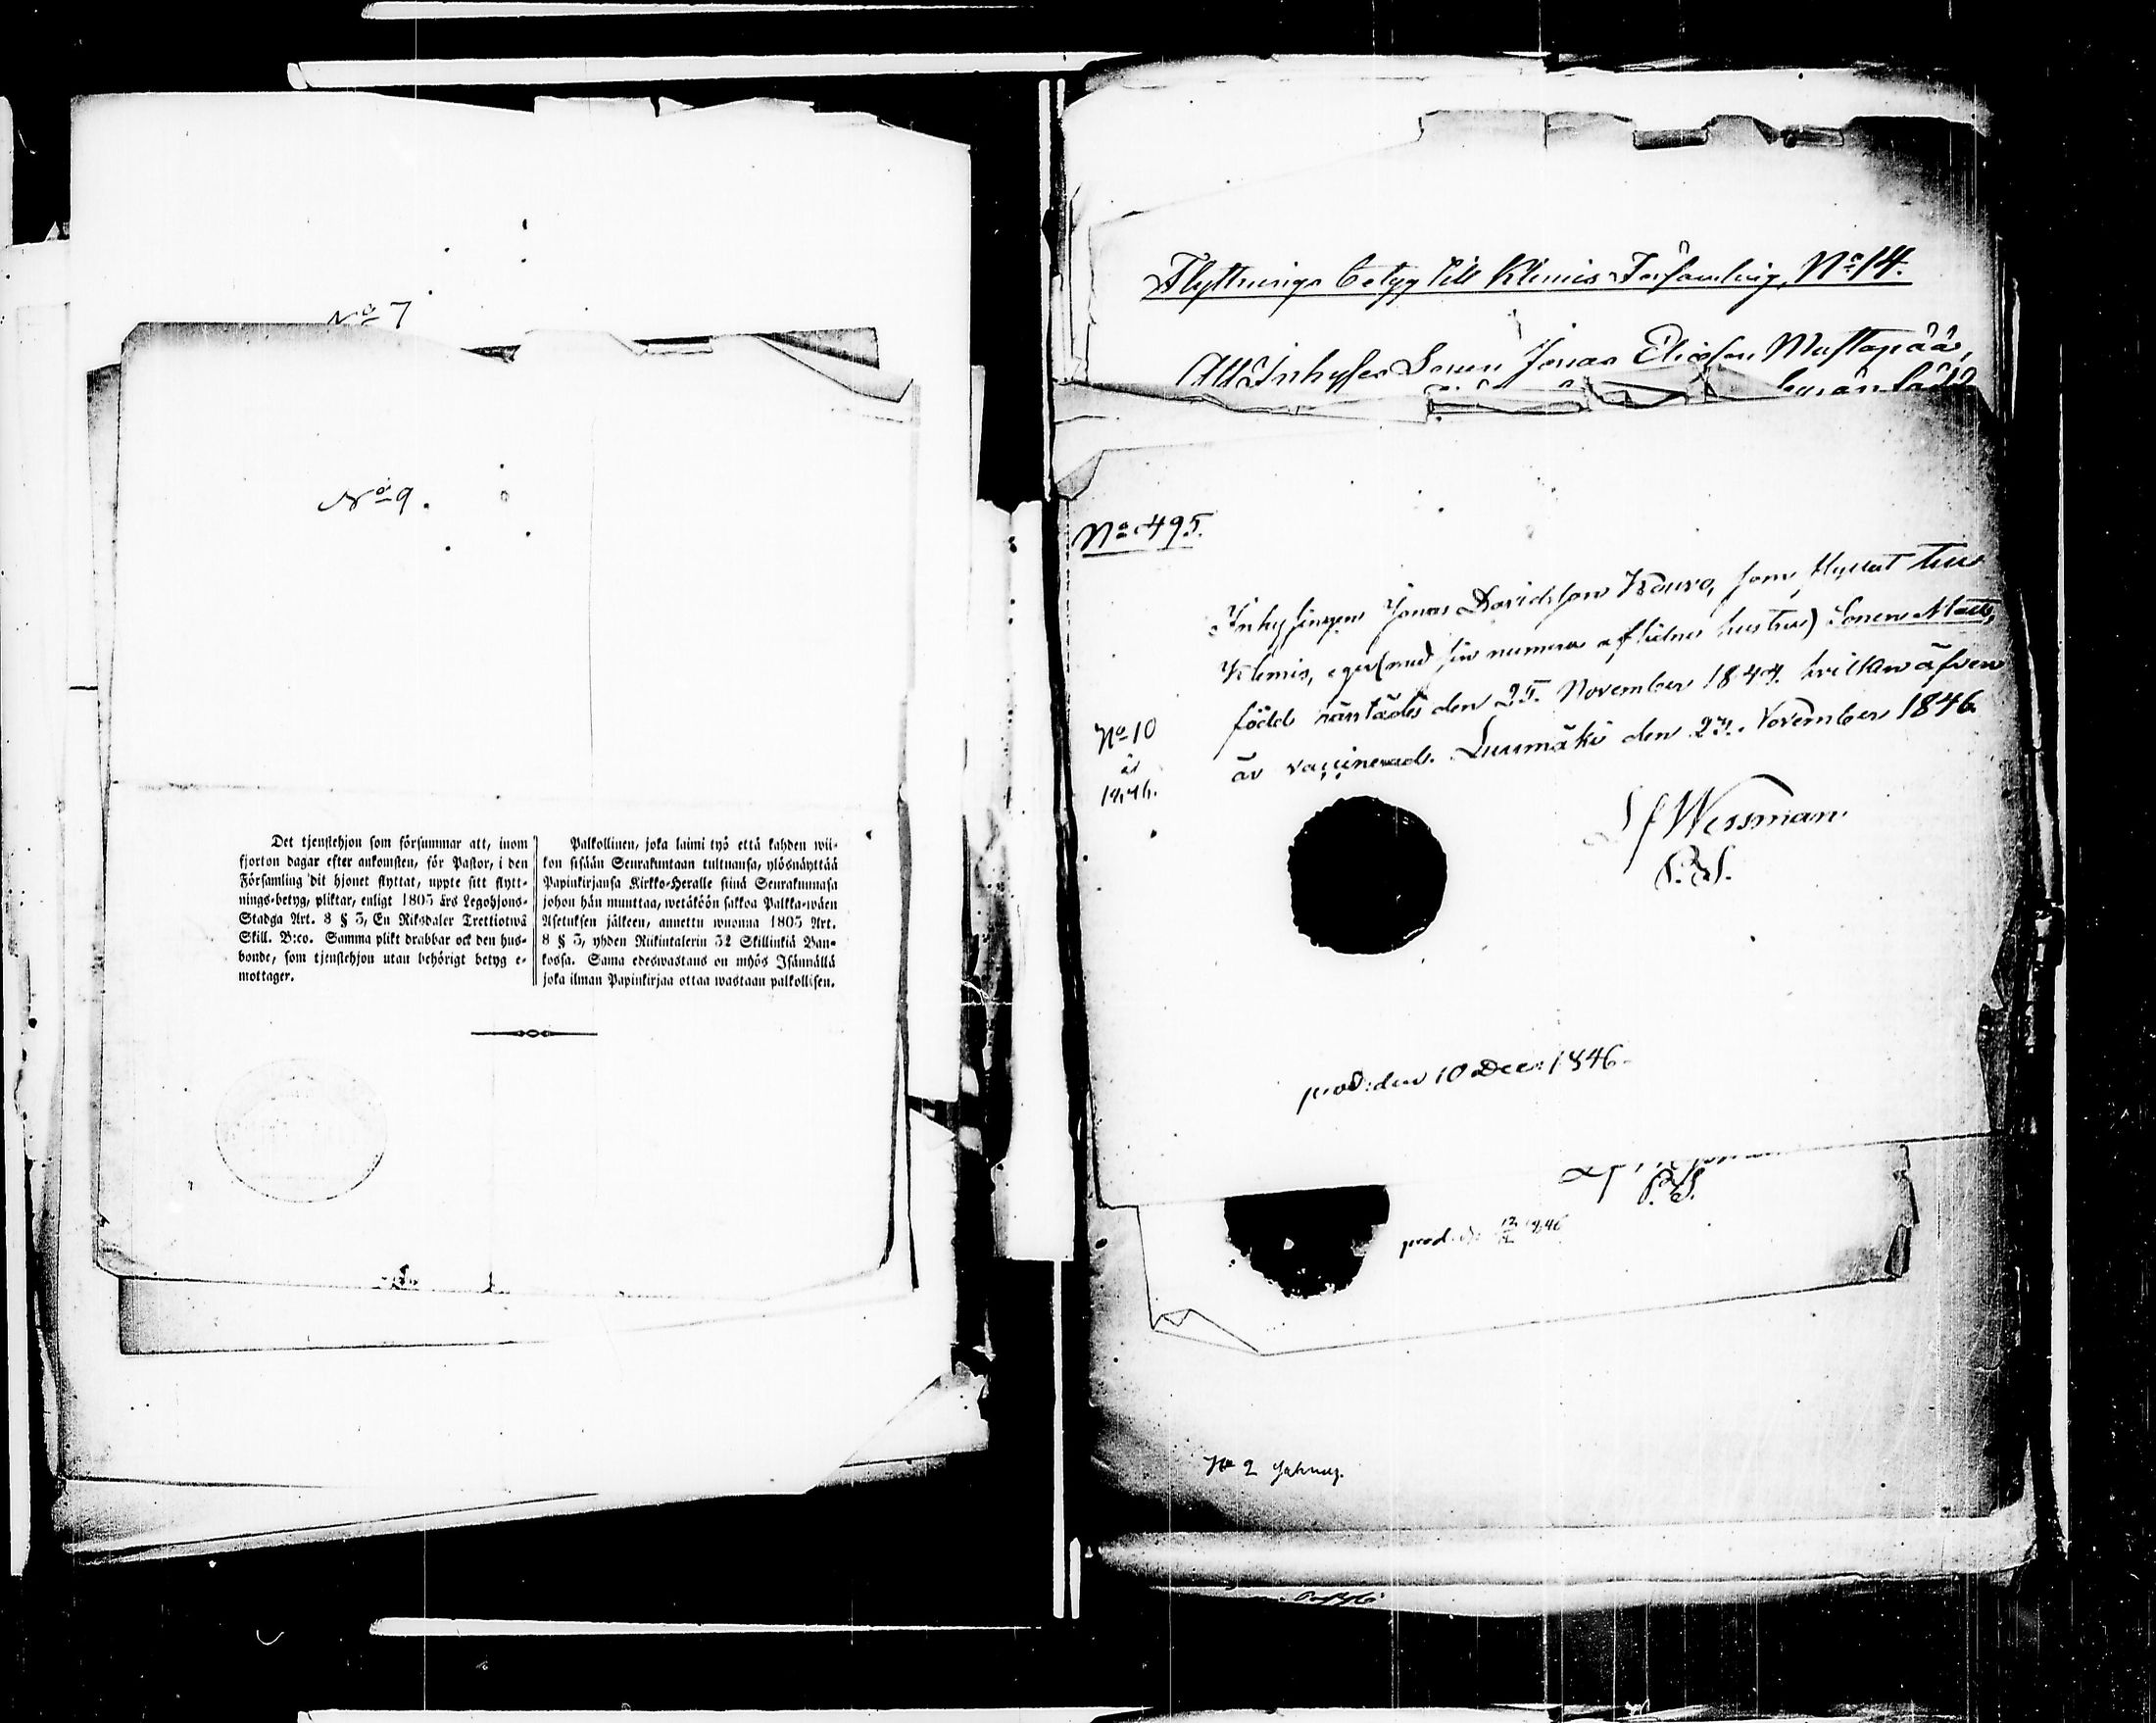 No 7
No 9.
Det tjenstehjon som försummar att, inom
fjorton dagar efter ankomsten, för Pastor, i den
Församling dit hjonet flyttat, uppte sitt flytt-
nings-betyg, pliktar, enligt 1805 års Legohjons-
Stadga Art. 8 § 3, En Riksdaler Trettiotwå
Skill. B:co. Samma plikt drabbar ock den hus-
bonde, som tjenstehjon utan behörigt betyg e-
mottager.
Palkollinen, joka laimi lyö että kahden wii-
kon sisään Seurakuntaan tultuansa, ylösnäyttää
Papinkirjansa Kirkko-Heralle siinä Seurakunnasa
johon hän muuttaa, wetäköön sakkoa Palkka-wäen
Asetuksen jälkeen, annettu wuonna 1805 Art.
8 § 3, yhden Riikintalerin 32 Skillinkiä Ban-
kossa. Sama edeswastaus on myös Isännällä
joka ilman Papinkirjaa ottaa wastaan palkollisen.
Flyttnings betyg till Klemis Församling, No 14.
Att Inhyses Sonen Jonas Eliasson Mustapää,
No 495.
Inhysingen Jonas Davidsson Kauro, som flyttat till
Klemis, eger (med sin numera aflidne hustru) Sonen Matts,
född härstädes den 25 November 1844, hvilken äfven
är vaccinerad. Luumäki den 23. November 1846.
No 10
år
1846.
Wessman
P. S.
prod: den 10 Dec: 1846.
P. S.
prod. d. 1846
No 2